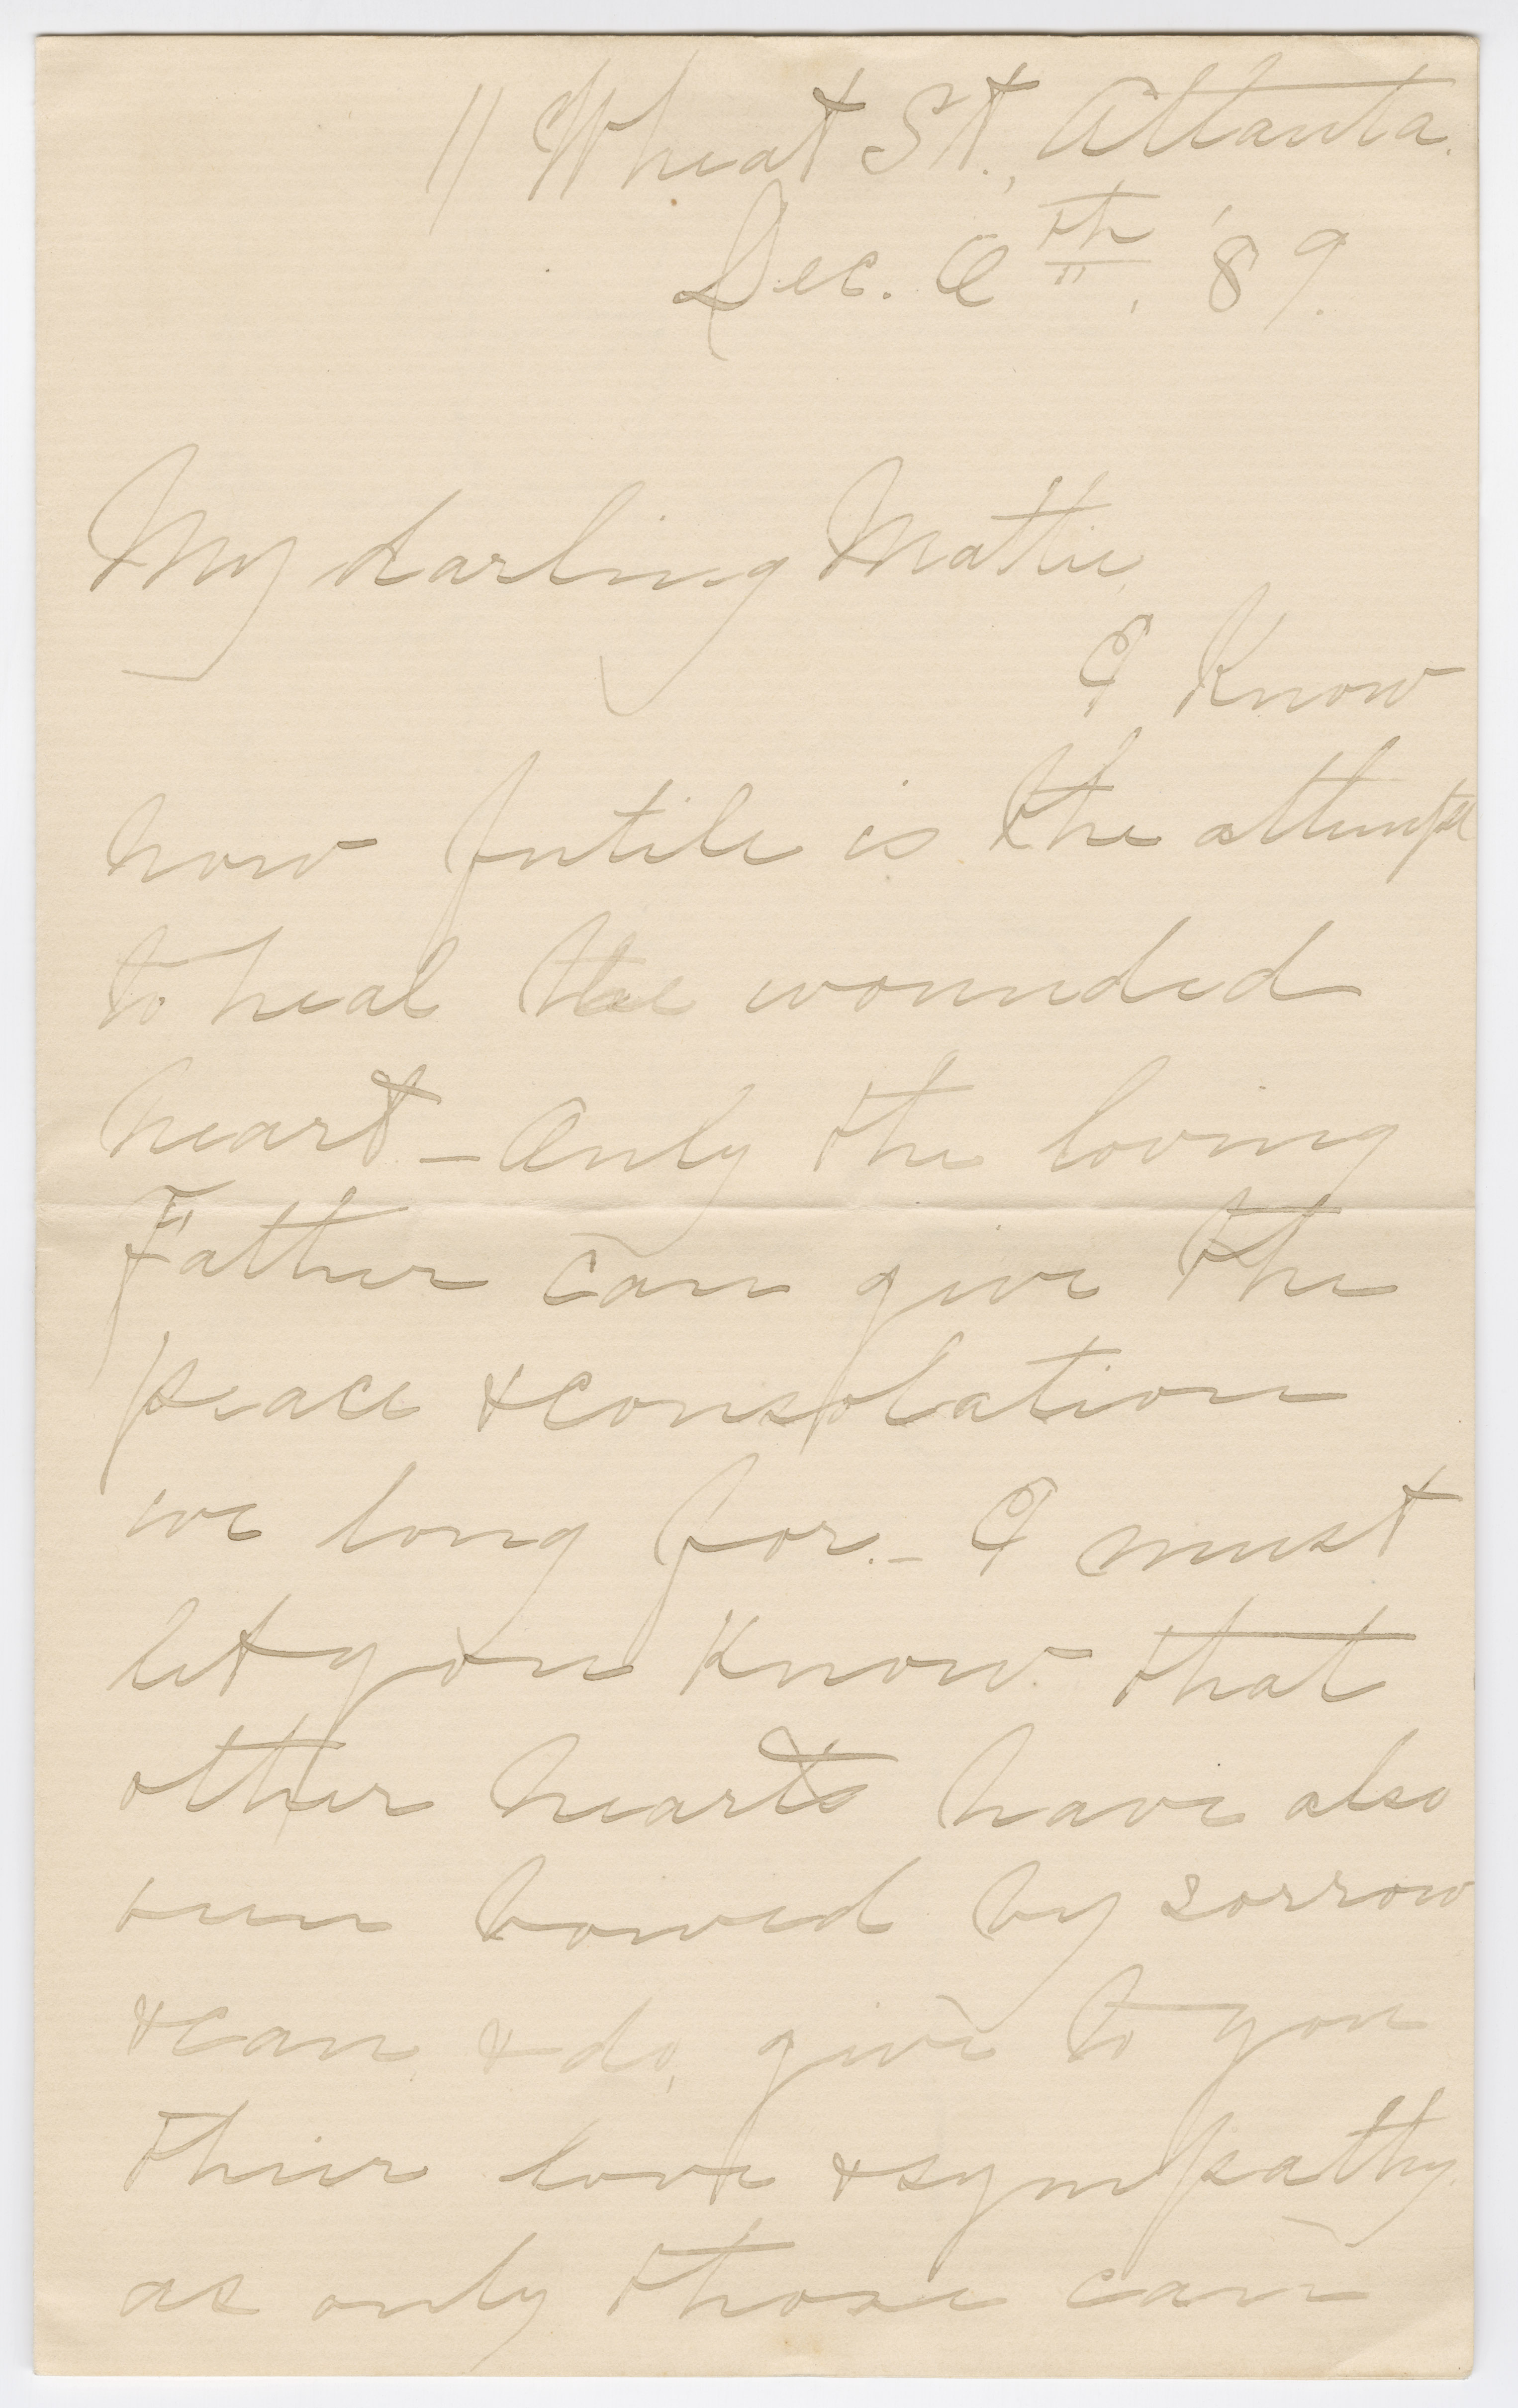 11 Wheat St., Atlanta.
Dec. 6th, '89.
My darling Mattie,
I know
how futile is the attempt
to heal the wounded
heart – Only the loving
Father can give the
peace & consolation
we long for. – I must
let you know that
other hearts have also
been bowed by sorrow
& can, & do, give to you
their love & sympathy.
as only those can